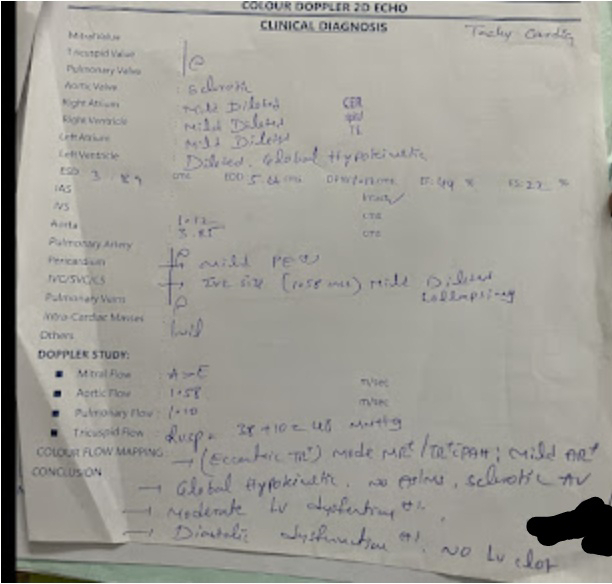 COLOUR DOPPLER 2D ECHO
CLINICAL DIAGNOSIS
Tachy Cardia
Mitral Valve
Tricuspid Valve
Pulmonary Valve
Aortic Valve : Sclerotic
Right Atrium Mild Dilated
Right Ventricle : Mild Dilated
Left Atrium : Mild Dilated
Left Ventricle : Dilated, Global Hypokinetic
ESD 3.89 CMS EDD CMS EF: 49 % FS: 22 %
IAS
IVS
Aorta
Pulmonary Artery
Pericardium Mild PE
IVC/SVC/CS IVC size Mild Dilated
Collapsing
Pulmonary Veins
Intra-Cardiac Masses
Others
DOPPLER STUDY:
Mitral Flow : A>E m/sec
Aortic Flow : 1.58 m/sec
Pulmonary Flow : 1.10
Tricuspid Flow 38+10=48 mmHg
COLOUR FLOW MAPPING → (Eccentric TR+) Mode MR+/TR+ PAH; Mild AR+
CONCLUSION
→ Global Hypokinetic, no, Sclerotic AV
→ Moderate LV dysfunction
→ Diastolic dysfunction, NO LV clot